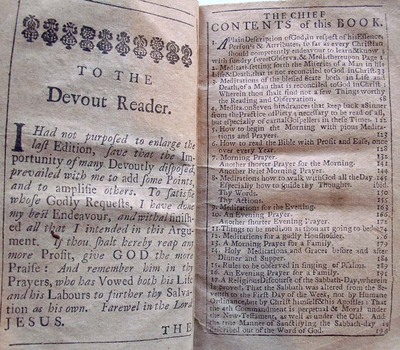 TO THE
Devout Reader.
I Had not purposed to enlarge the
last Edition, save that the Im-
portunity of many Devoutly disposed,
prevailed with me to add some Points,
and to amplifie others. To satisfie
whose Godly Requests, I have done
my best Endeavour, and withal finish-
ed all that I intended in this Argu-
ment. If thou shalt hereby reap any
more Profit, give GOD the more
Praise: And remember him in thy
Prayers, who has Vowed both his Life
and his Labours to further thy Salva-
tion as his own. Farewel in the Lord
JESUS.
THE
THE CHIEF
CONTENTS of this BOOK.
A Plain Description of God, in respect of his Essence,
Person's & Attributes, so far as every Christian
should competently endeavour to learn & know
with sundry
Page 1
2. Meditat. setting forth the Miseries of a Man in this
Life & Death, that is not reconciled to God in Christ
3. Meditations of the blessed State both in Life and
Death, of a Man that is reconciled to God in Christ.
Wherein thou shalt find not a few Things worthy
the Reading and Observation.
4. Meditat. on Seven hindrances that keep back a Sinner
from the Practice of Piety necessary to be read of all,
but especially of carnal Gospellers in these Times.
5. How to begin the Morning with pious Medita-
tions and Prayers.
6. How to read the Bible with Profit and Ease, once
over every Year.
7. Morning Prayer.
Another shorter Prayer for the Morning.
Another Brief Morning Prayer.
8. Meditations how to walk with God all the Day
Especially how to guide thy Thoughts. ibid.
Thy Words.
Thy Actions.
9. Meditations for the Evening.
10. An Evening Prayer.
Another shorter Evening Prayer.
11. Things to be meditat on as thou art going to bed
12. Meditations for a godly Housholder.
13. A Morning Prayer for a Family.
14. Holy Meditations, and Graces before and after
Dinner and Supper.
15. Rules to be observed in singing of Psalms.
16. An Evening Prayer for a Family.
17. A Religious Discourse of the Sabbath-Day, wherein is
proved, that the Sabbath was altered from the Se-
venth to the First Day of the Week, not by Humane
Ordinance, but by Christ himself & his Apostles: That
the 4th Commandment is perpetual & Moral under
the New-Testament, as well as under the Old: And
the true Manner of Sanctifying the Sabbath-day
out of the Word of God.